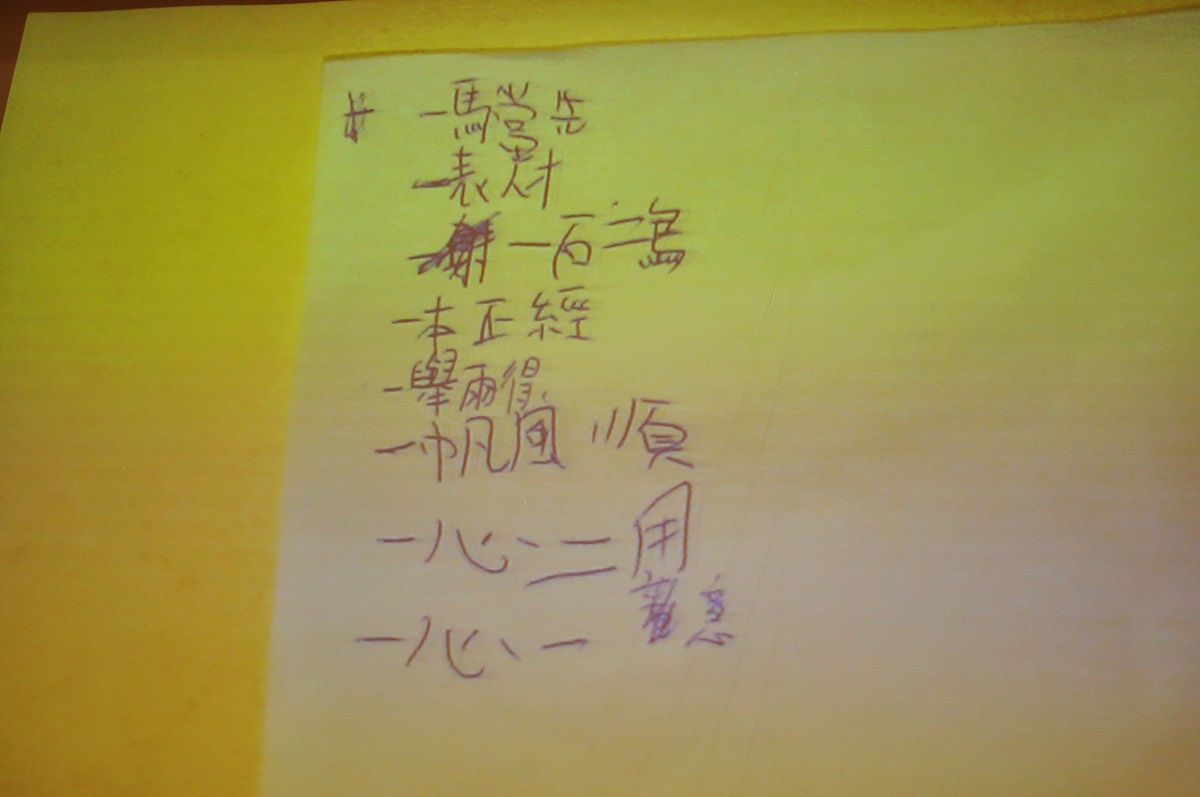 一馬當先
一表人才
一石二鳥
一本正經
一舉兩得
一帆風順
一心二用
一心一意